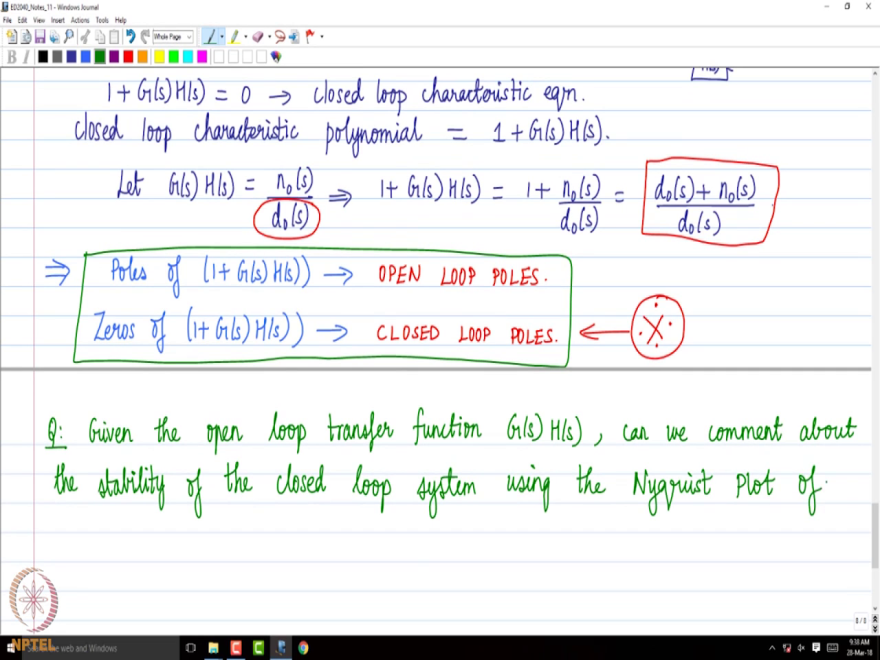 ED2040_Notes_11 - Windows Journal
File Edit View Insert Actions Tools Help
Whole Page
B I
1 + G(s)H(s) = 0 → closed loop characteristic eqn.
closed loop characteristic polynomial = 1 + G(s)H(s).
Let G(s)H(s) = n₀(s)/d₀(s) ⇒ 1 + G(s)H(s) = 1 + n₀(s)/d₀(s) = (d₀(s) + n₀(s))/d₀(s)
⇒ Poles of (1 + G(s)H(s)) → OPEN LOOP POLES.
Zeros of (1 + G(s)H(s)) → CLOSED LOOP POLES. ←
Q: Given the open loop transfer function G(s)H(s), can we comment about
the stability of the closed loop system using the Nyquist Plot of
8/8
NPTEL
the web and Windows
9:38 AM
28-Mar-18